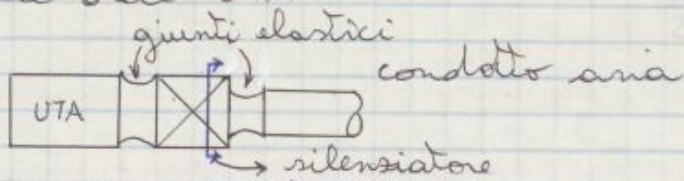 giunti elastici
condotto aria
UTA
silenziatore